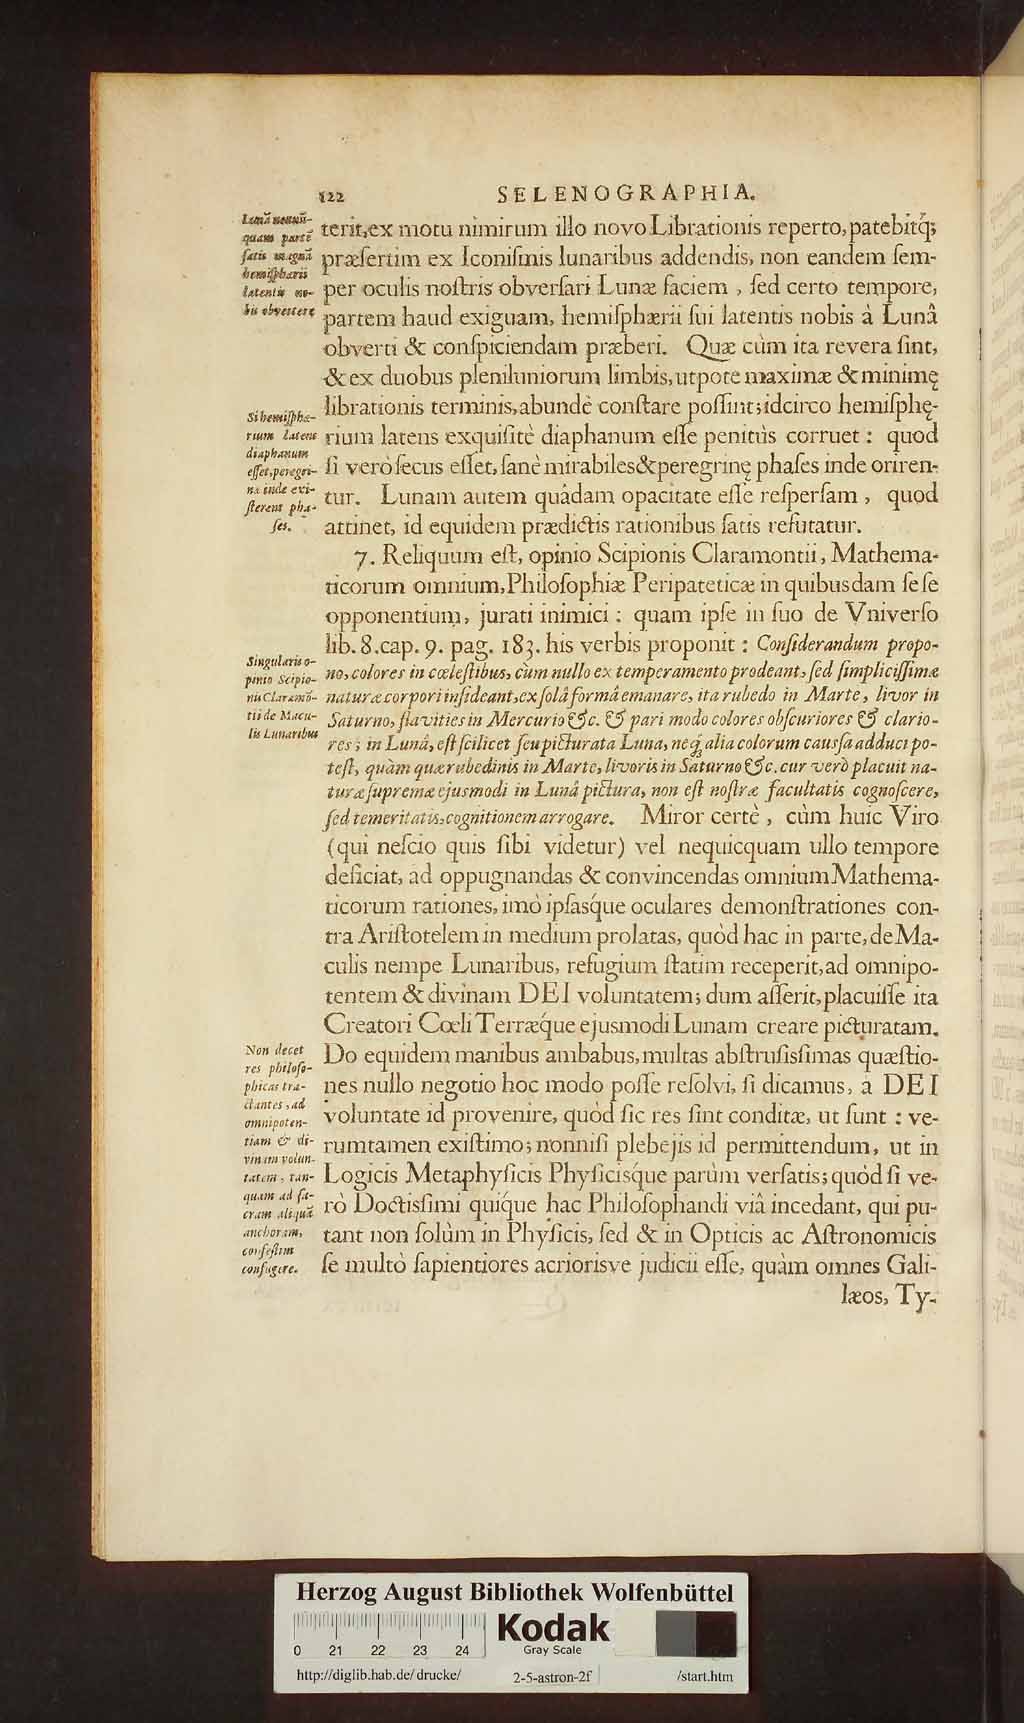 122 SELENOGRAPHIA.
Lunã nonnũ-
quam partẽ
ſatis magnã
hemiſphærii
latentis no-
bis obvertere
terit, ex motu nimirum illo novo Librationis reperto, patebitq́;
præſertim ex Iconiſmis lunaribus addendis, non eandem ſem-
per oculis noſtris obverſari Lunæ faciem, ſed certo tempore,
partem haud exiguam, hemiſphærii ſui latentis nobis à Lunâ
obverti & conſpiciendam præberi. Quæ cùm ita revera ſint,
& ex duobus pleniluniorum limbis, utpote maximæ & minimę
Si hemiſphæ-
rium latens
diaphanum
eſſet, peregri-
næ inde exi-
ſterent pha-
ſes.
librationis terminis, abundè conſtare poſſint; idcirco hemiſphę-
rium latens exquiſitè diaphanum eſſe penitùs corruet: quod
ſi verò ſecus eſſet, ſanè mirabiles & peregrinę phaſes inde oriren-
tur. Lunam autem quâdam opacitate eſſe reſperſam, quod
attinet, id equidem prædictis rationibus ſatis refutatur.
7. Reliquum eſt, opinio Scipionis Claramontii, Mathema-
ticorum omnium, Philoſophiæ Peripateticæ in quibusdam ſeſe
opponentium, jurati inimici: quam ipſe in ſuo de Vniverſo
lib. 8. cap. 9. pag. 183. his verbis proponit: Conſiderandum propo-
Singularis o-
pinio Scipio-
nis Claramõ-
tii de Macu-
lis Lunaribus
no, colores in cœleſtibus, cùm nullo ex temperamento prodeant, ſed ſimpliciſſimæ
naturæ corpori inſideant, ex ſolâ formâ emanare, ita rubedo in Marte, livor in
Saturno, flavities in Mercurio &c. & pari modo colores obſcuriores & clario-
res; in Lunâ, eſt ſcilicet ſeu picturata Luna, neq́ alia colorum cauſa adduci po-
teſt, quàm quæ rubedinis in Marte, livoris in Saturno &c. cur verò placuit na-
turæ ſupremæ ejusmodi in Lunâ pictura, non eſt noſtræ facultatis cognoſcere,
ſed temeritatis, cognitionem arrogare. Miror certè, cùm huic Viro
(qui neſcio quis ſibi videtur) vel nequicquam ullo tempore
deficiat, ad oppugnandas & convincendas omnium Mathema-
ticorum rationes, imò ipſasq́ue oculares demonſtrationes con-
tra Ariſtotelem in medium prolatas, quòd hac in parte, de Ma-
culis nempe Lunaribus, refugium ſtatim receperit, ad omnipo-
tentem & divinam DEI voluntatem; dum aſſerit, placuiſſe ita
Creatori Cœli Terræq́ue ejusmodi Lunam creare picturatam.
Non decet
res philoſo-
phicas tra-
ctantes, ad
omnipoten-
tiam & di-
vinam volun-
tatem, tan-
quam ad ſa-
cram aliquã
anchoram,
confeſtim
confugere.
Do equidem manibus ambabus, multas abſtruſiſſimas quæſtio-
nes nullo negotio hoc modo poſſe reſolvi, ſi dicamus, à DEI
voluntate id provenire, quòd ſic res ſint conditæ, ut ſunt: ve-
rumtamen exiſtimo; nonniſi plebejis id permittendum, ut in
Logicis Metaphyſicis Phyſicisq́ue parùm verſatis; quòd ſi ve-
rò Doctiſſimi quiq́ue hac Philoſophandi viâ incedant, qui pu-
tant non ſolùm in Phyſicis, ſed & in Opticis ac Aſtronomicis
ſe multò ſapientiores acriorisve judicii eſſe, quàm omnes Gali-
læos, Ty-
Herzog August Bibliothek Wolfenbüttel
Kodak
Gray Scale
0 21 22 23 24
http://diglib.hab.de/drucke/ 2-5-astron-2f /start.htm